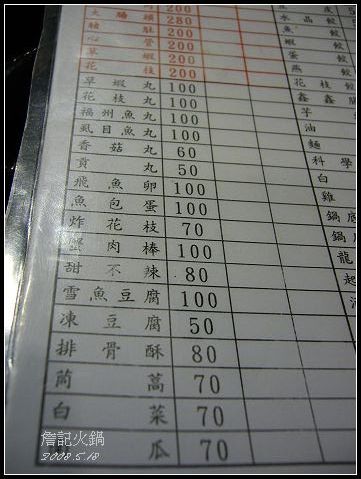 200
大腸頭 280
心管 200
草蝦 200
花枝 200
草蝦丸 100
花枝丸 100
福州魚丸 100
虱目魚丸 100
香菇丸 60
貢丸 50
飛魚卵 100
魚包蛋 100
炸花枝 70
蟹肉棒 100
甜不辣 80
雪魚豆腐 100
凍豆腐 50
排骨酥 80
茼蒿 70
白菜 70
瓜 70
水晶餃
魚餃
蝦餃
蛋餃
燕餃
花枝
鑫鑫
芋
油
麵
科學
白
雞
鍋
龍
起
詹記火鍋
2008.5.18